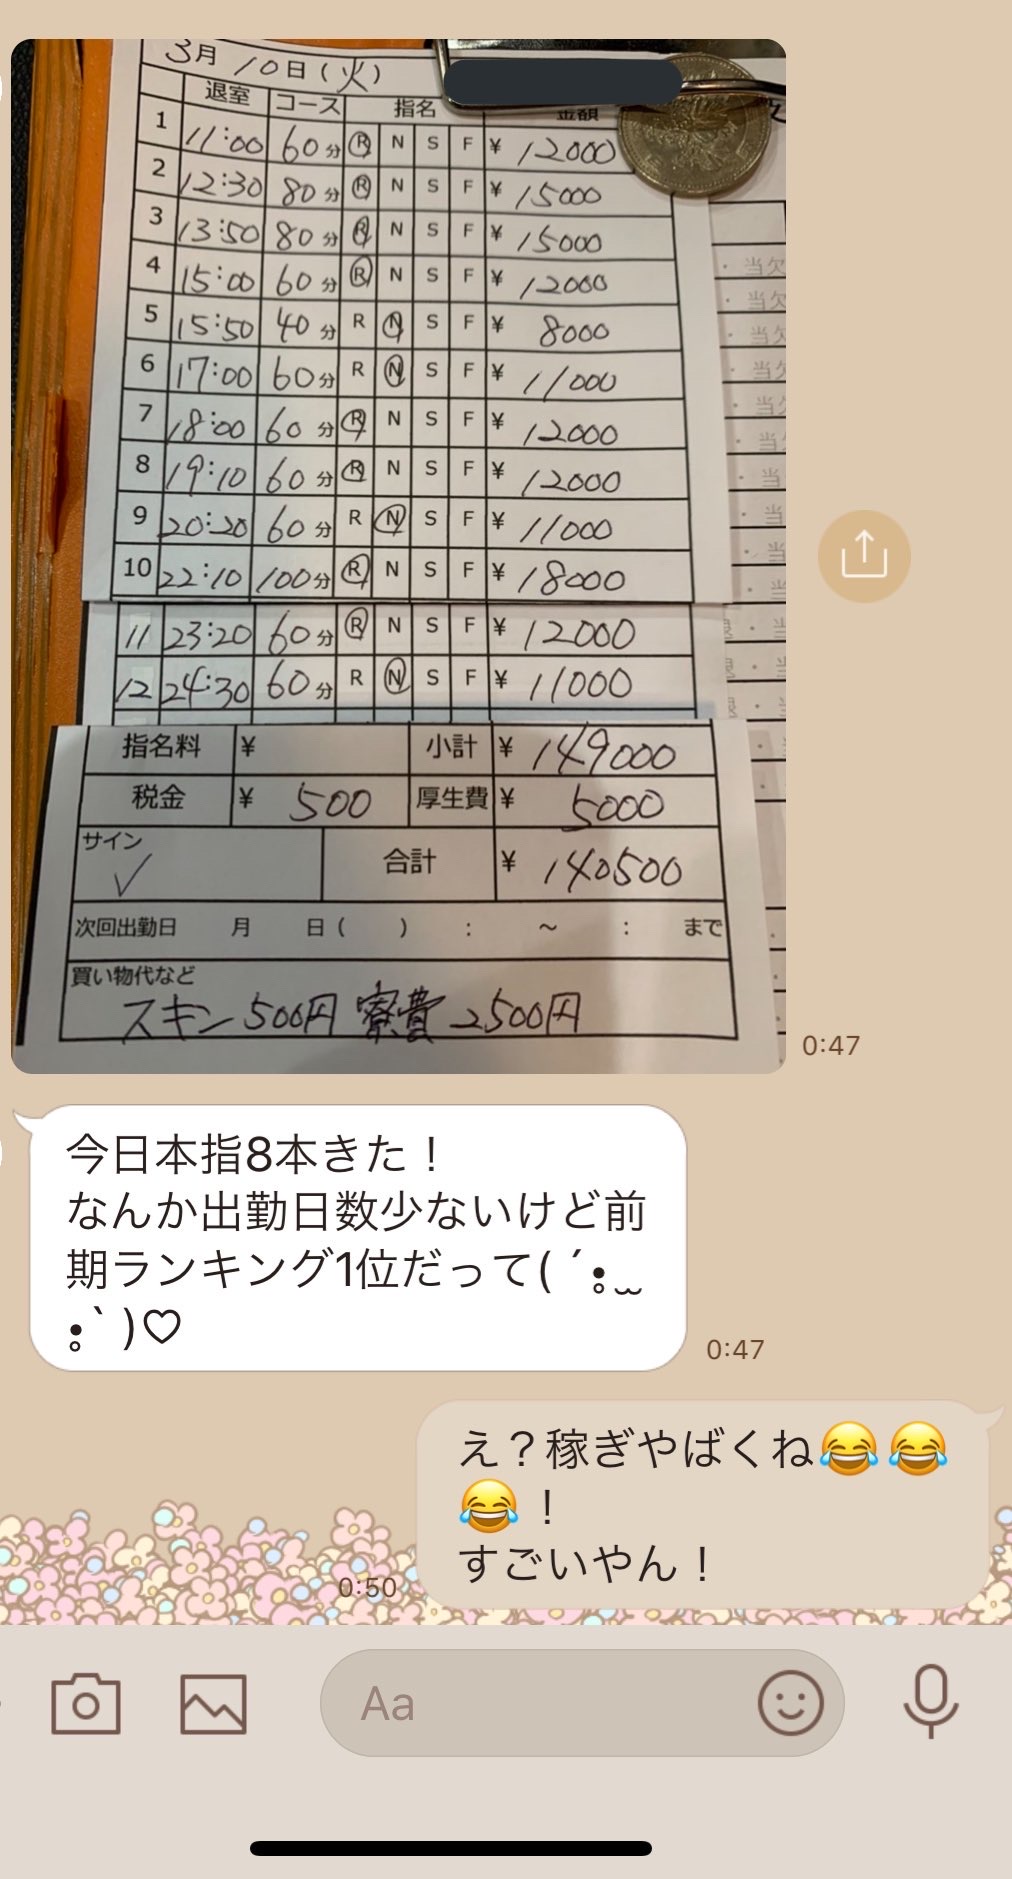 3月10日(火)
退室 コース 指名 金額
1 11:00 60分 R N S F ¥ 12000
2 12:30 80分 R N S F ¥ 15000
3 13:50 80分 R N S F ¥ 15000
4 15:00 60分 R N S F ¥ 12000
5 15:50 40分 R N S F ¥ 8000
6 17:00 60分 R N S F ¥ 11000
7 18:00 60分 R N S F ¥ 12000
8 19:10 60分 R N S F ¥ 12000
9 20:20 60分 R N S F ¥ 11000
10 22:10 100分 R N S F ¥ 18000
11 23:20 60分 R N S F ¥ 12000
12 24:30 60分 R N S F ¥ 11000
指名料 ¥ 小計 ¥ 149000
税金 ¥ 500 厚生費 ¥ 5000
サイン
合計 ¥ 140500
次回出勤日 月 日( ) : ~ : まで
買い物代など
スキン500円 寮費2500円
・当欠
・当欠
・当欠
・当
・当
・当
・当
・当
・当
・当
0:47
今日本指8本きた!
なんか出勤日数少ないけど前
期ランキング1位だって( ´•̥ ̫
•̥` )♡
0:47
え?稼ぎやばくね😂😂
😂!
すごいやん!
0:50
Aa